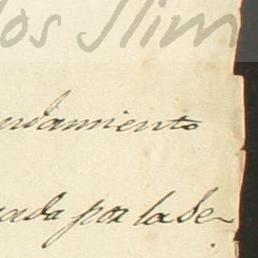 los Slim
ndamiento
nada por la Se-